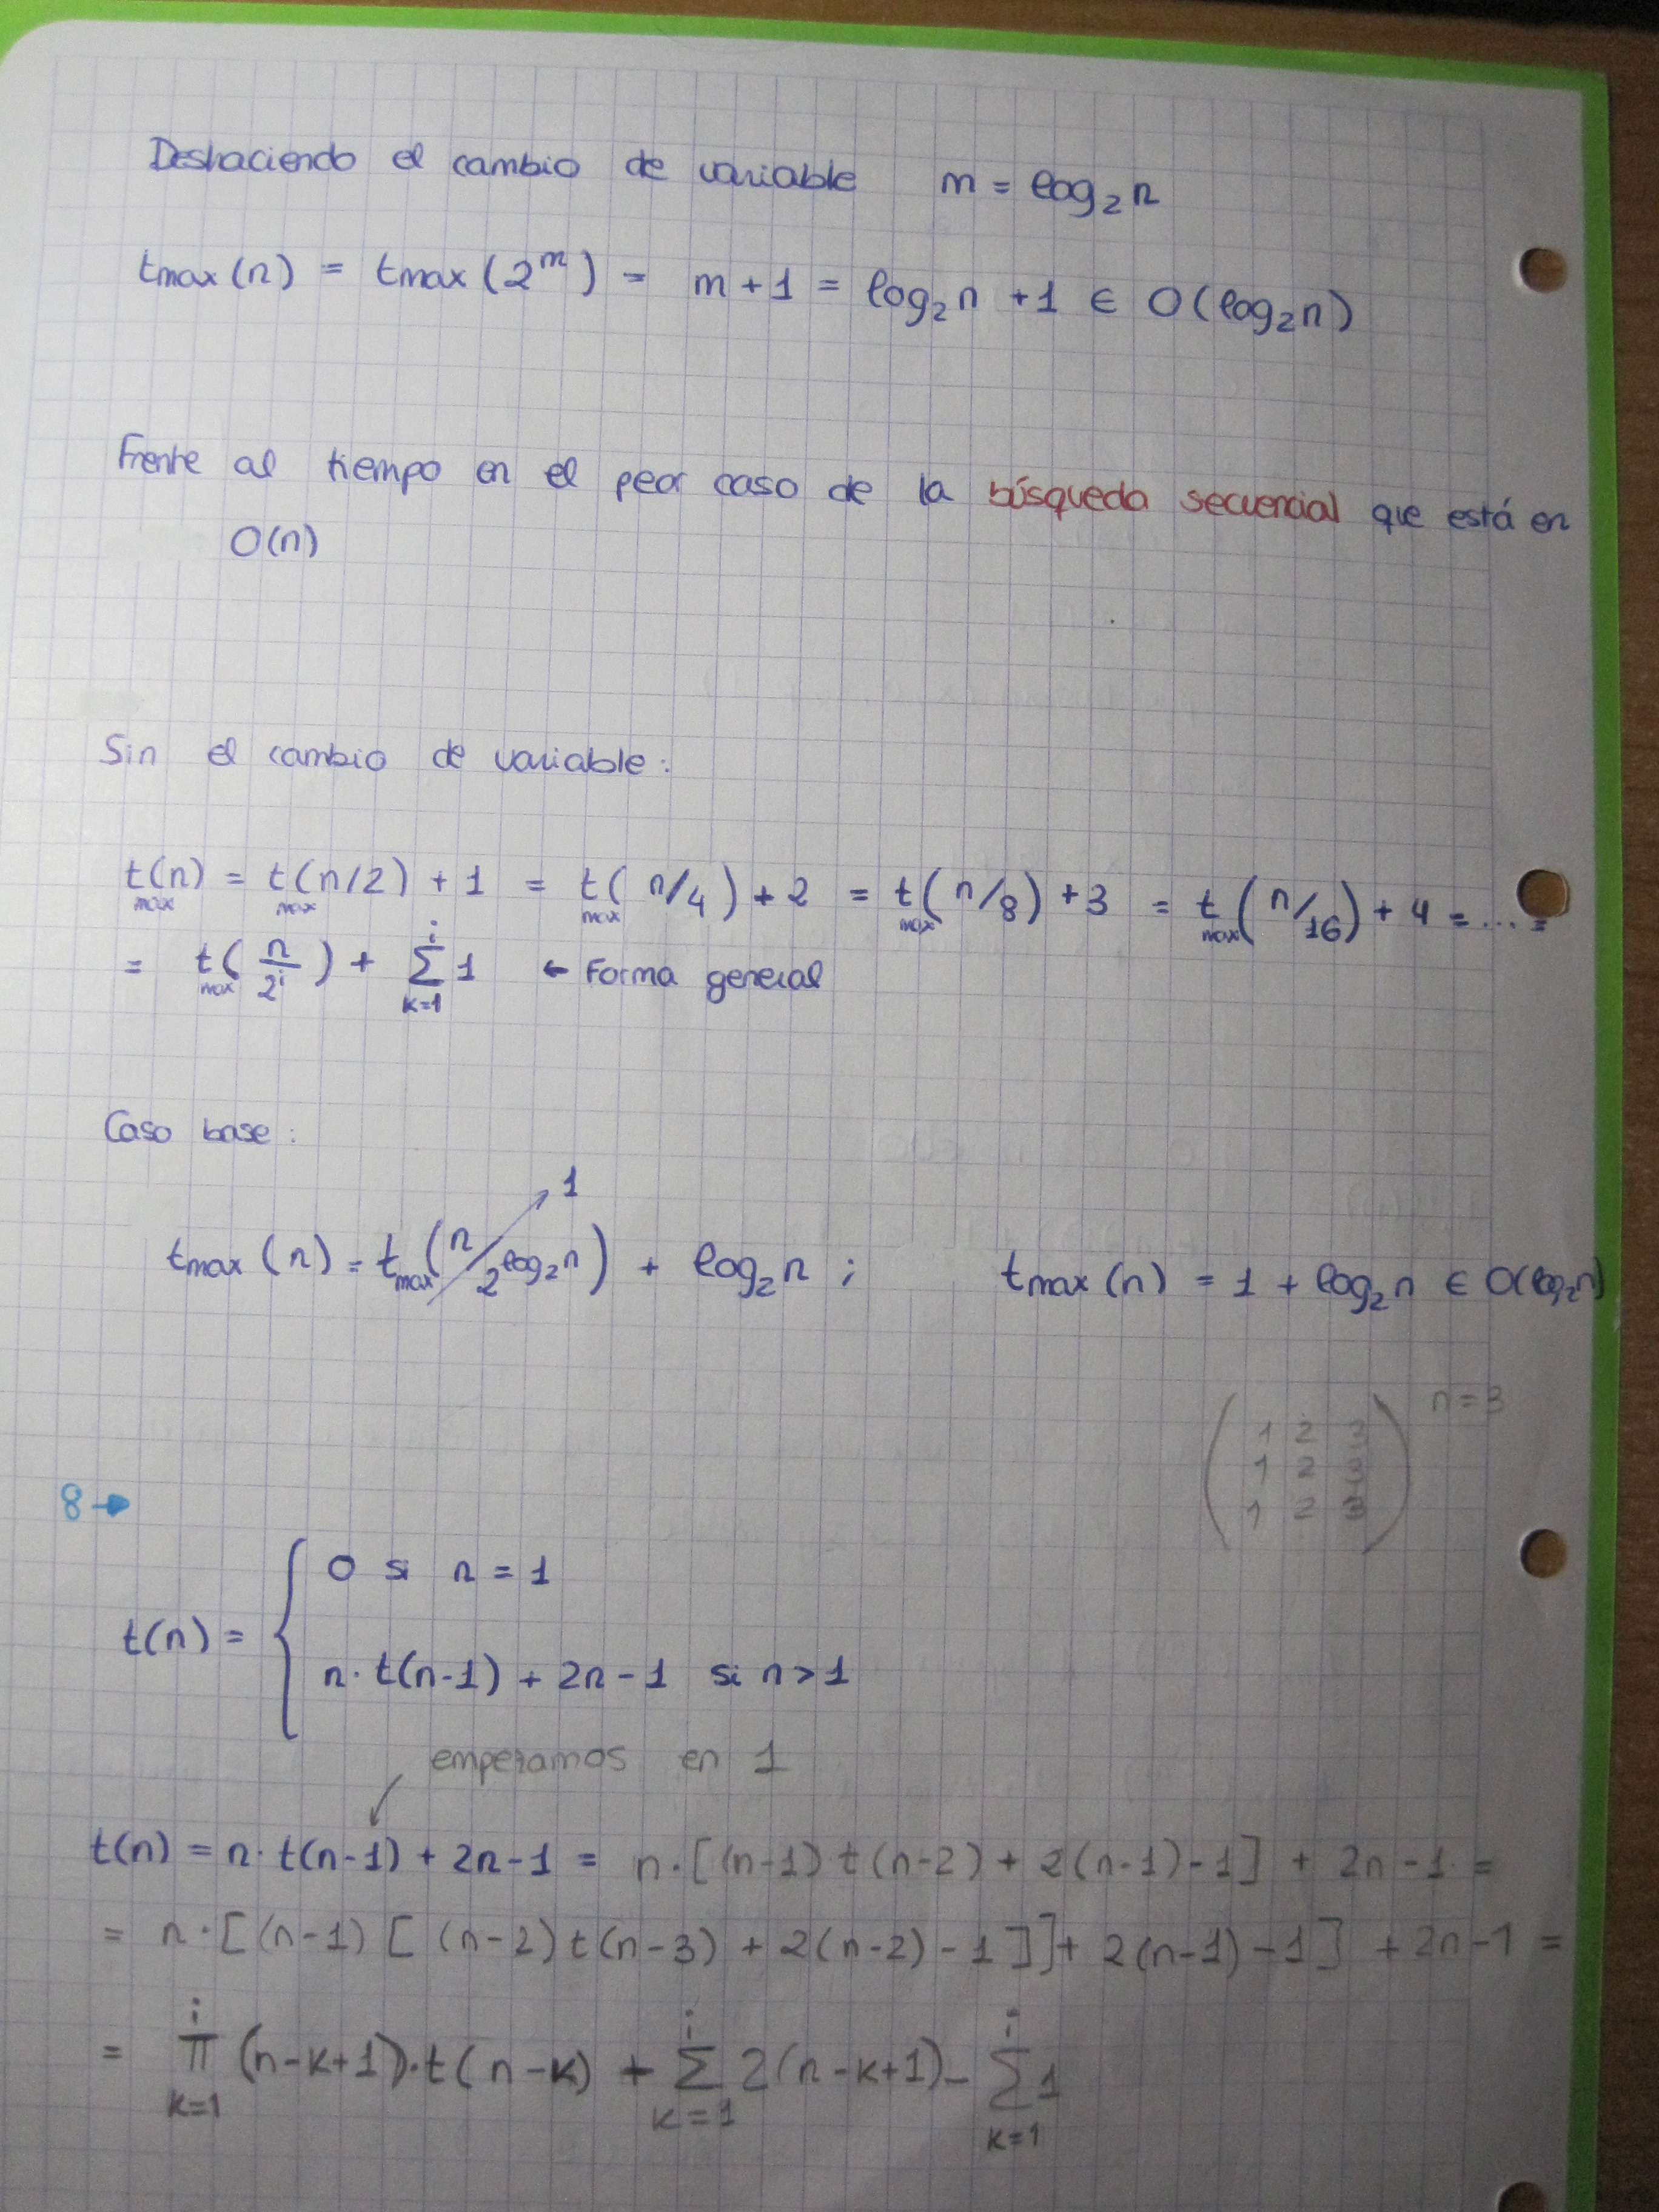 Deshaciendo el cambio de variable m = log₂n
tmax(n) = tmax(2^m) = m+1 = log₂n +1 ∈ O(log₂n)
Frente al tiempo en el peor caso de la búsqueda secuencial que está en
O(n)
Sin el cambio de variable:
tmax(n) = tmax(n/2) + 1 = tmax(n/4) + 2 = tmax(n/8) + 3 = tmax(n/16) + 4 = ... =
= tmax(n/2^i) + Σ_{k=1}^{i} 1 ← Forma general
Caso base:
1
tmax(n) = tmax(n/2^log₂n) + log₂n ; tmax(n) = 1 + log₂n ∈ O(log₂n)
n=3
1 2 3
1 2 3
1 2 3
8→
0 si n = 1
t(n) =
n· t(n-1) + 2n - 1 si n > 1
empezamos en 1
t(n) = n· t(n-1) + 2n-1 = n·[(n-1) t(n-2) + 2(n-1)-1] + 2n-1 =
= n·[(n-1)[(n-2)t(n-3) + 2(n-2)-1]]+ 2(n-1)-1] + 2n-1 =
= π_{k=1}^{i} (n-k+1)·t(n-k) + Σ_{k=1}^{i} 2(n-k+1) - Σ_{k=1}^{i} 1